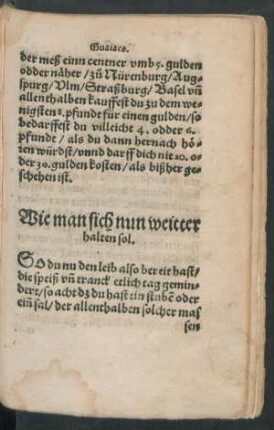 Guaiaco.
der meß einn centner vmb 5. gulden
odder näher/ zů Nürenburg/ Aug-
spurg/ Vlm/ Straßburg/ Basel vñ
allenthalben kauffest du zu dem we-
nigsten 8. pfundt für einen gulden/ so
bedarffest du villeicht 4. odder 6.
pfundt/ als du dann hernach hö-
ren würdst/ vnnd darff dich nit 20. o-
der 30. gulden kosten/ als bißher ge-
schehen ist.
Wie man sich nun weitter
halten sol.
SO du nu den leib also bereit hast/
die speiß vñ tranck etlich tag gemin-
dert/ so acht dz du hast ein stubē oder
ein sal/ der allenthalben solcher mas
sen